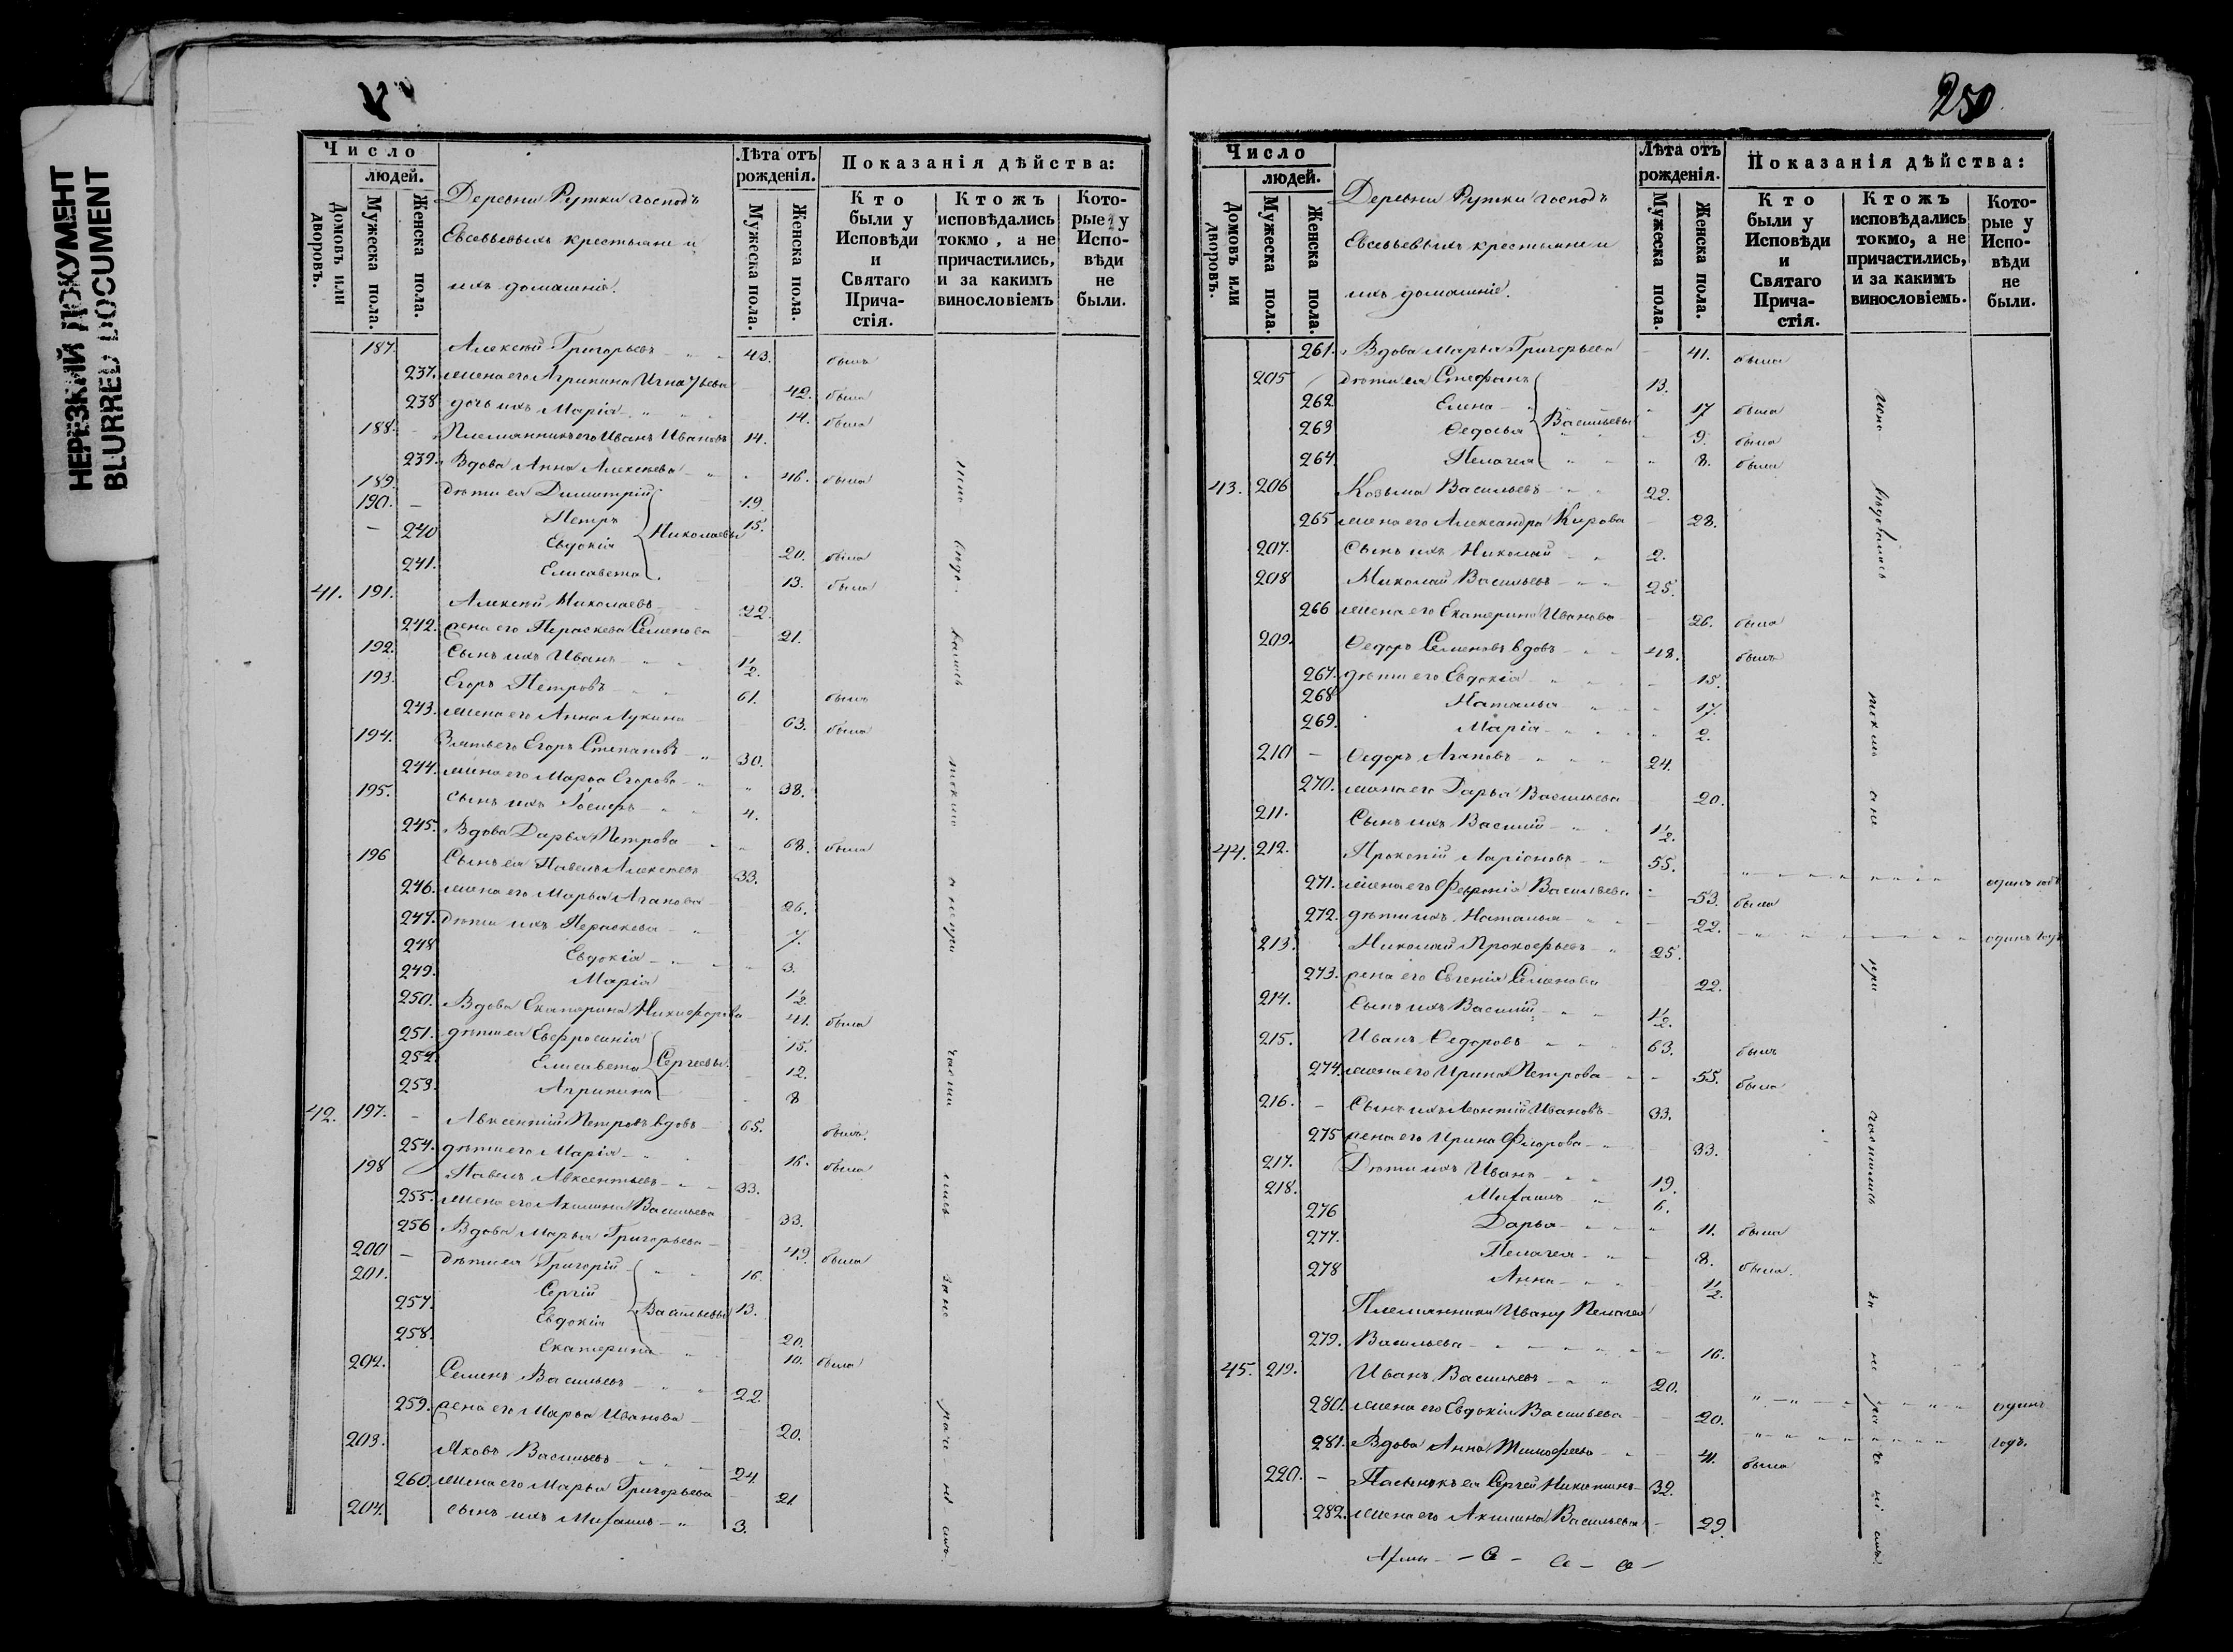 НЕРЕЗКИЙ ДОКУМЕНТ
BLURRED DOCUMENT
Число
людей.
Домовъ или дворовъ.
Мужеска пола.
Женска пола.
Деревни Рутки господъ
Евсевьевыхъ крестьяне и
ихъ домашніе.
Лѣта отъ рожденія.
Мужеска пола.
Женска пола.
Показанія дѣйства:
Кто были у Исповѣди и Святаго Прича-стія.
Ктожъ исповѣдались токмо, а не причастились, и за какимъ винословіемъ
Кото-рые у Испо-вѣди не были.
187. Алексѣй Григорьевъ 43. былъ
237. жена его Агрипина Игнатьева 42. была
238 дочь ихъ Марія 14. была
188. Племянникъ его Иванъ Ивановъ 14.
239. Вдова Анна Алексѣева 46. была
189. дѣти ея Димитрій 19.
190. Петръ 15.
Николаевы
240 Евдокія 20. была
241. Елисавета 13. была
41. 191. Алексѣй Николаевъ 22.
242. жена его Параскева Семенова 21.
192. Сынъ ихъ Иванъ 1/2.
193. Егоръ Петровъ 61. былъ
243. жена его Анна Лукина 63. была
194. Зять его Егоръ Степановъ 30.
244. жена его Марѳа Егорова 38.
195. Сынъ ихъ 4.
245. Вдова Дарья Петрова 68. была
196 Сынъ ея Павелъ Алексѣевъ 33.
246. жена его Марья Агапова 26.
247. Дѣти ихъ Параскева 7.
248 Евдокія 3.
249. Марія 1/2
250. Вдова Екатерина Никифорова 41. была
251. дѣти ея Евфросинія 15.
252. Елисавета 12.
Сергѣевы
253. Агрипина 8
42. 197. Авксентій Петровъ вдовъ 65. былъ.
254. дѣти его Марія 16. была
198 Павелъ Авксентьевъ 33.
255. жена его Акилина Васильева 33.
256 Вдова Марья Григорьева 49. была
200 дѣти ея Григорій 16.
201. Сергій 13.
Васильевы
257. Евдокія 20.
258. Екатерина 10. была
202. Семенъ Васильевъ 22.
259. жена его Марѳа Иванова 20.
203. Яковъ Васильевъ 24.
260. жена его Марья Григорьева 21.
204. сынъ ихъ Михаилъ 3.
250
Число
людей.
Домовъ или дворовъ.
Мужеска пола.
Женска пола.
Деревни Рутки господъ
Евсевьевыхъ крестьяне и
ихъ домашніе.
Лѣта отъ рожденія.
Мужеска пола.
Женска пола.
Показанія дѣйства:
Кто были у Исповѣди и Святаго Прича-стія.
Ктожъ исповѣдались токмо, а не причастились, и за какимъ винословіемъ.
Кото-рые у Испо-вѣди не были.
261. Вдова Марья Григорьева 41. была
205 дѣти ея Стефанъ 13.
262 Елена 17 была
Васильевы
263 Ѳедосья 9. была
264. Пелагея 8. была
43. 206 Козьма Васильевъ 22.
265 жена его Александра Кирова 23.
207. Сынъ ихъ Николай 2.
208 Николай Васильевъ 25.
266 жена его Екатерина Иванова 26. была
209. Ѳедоръ Семеновъ вдовъ 48. былъ
267. дѣти его Евдокія 15.
268 Наталья 17.
269. Марія 2.
210 Ѳедоръ Агаповъ 24.
270. жена его Дарья Васильева 20.
211. Сынъ ихъ Василій 1/2.
44. 212. Прокопій Ларіоновъ 55. одинъ годъ
271. жена его Февронія Васильева 53. была
272. дѣти ихъ Наталья 22. одинъ годъ
213. Николай Прокофьевъ 25.
273. жена его Евгенія Семенова 22.
214. Сынъ ихъ Василій 1/2.
215. Иванъ Ѳедоровъ 63. былъ
274. жена его Ирина Петрова 55. была
216. Сынъ ихъ Леонтій Ивановъ 33.
275 жена его Ирина Флорова 33.
217. Дѣти ихъ Иванъ 19.
218. Михаилъ 6.
276 Дарья 11. была
277. Пелагея 8. была.
278 Анна 1/2.
Племянница Ивану Пелагея
279. Васильева 16.
45. 219. Иванъ Васильевъ 20. одинъ
280. жена его Евдокія Васильева 20. годъ.
281. Вдова Анна Тимофеева 41. была
220. Пасынокъ ея Сергей Никитинъ 32.
282. жена его Акилина Васильева 29.